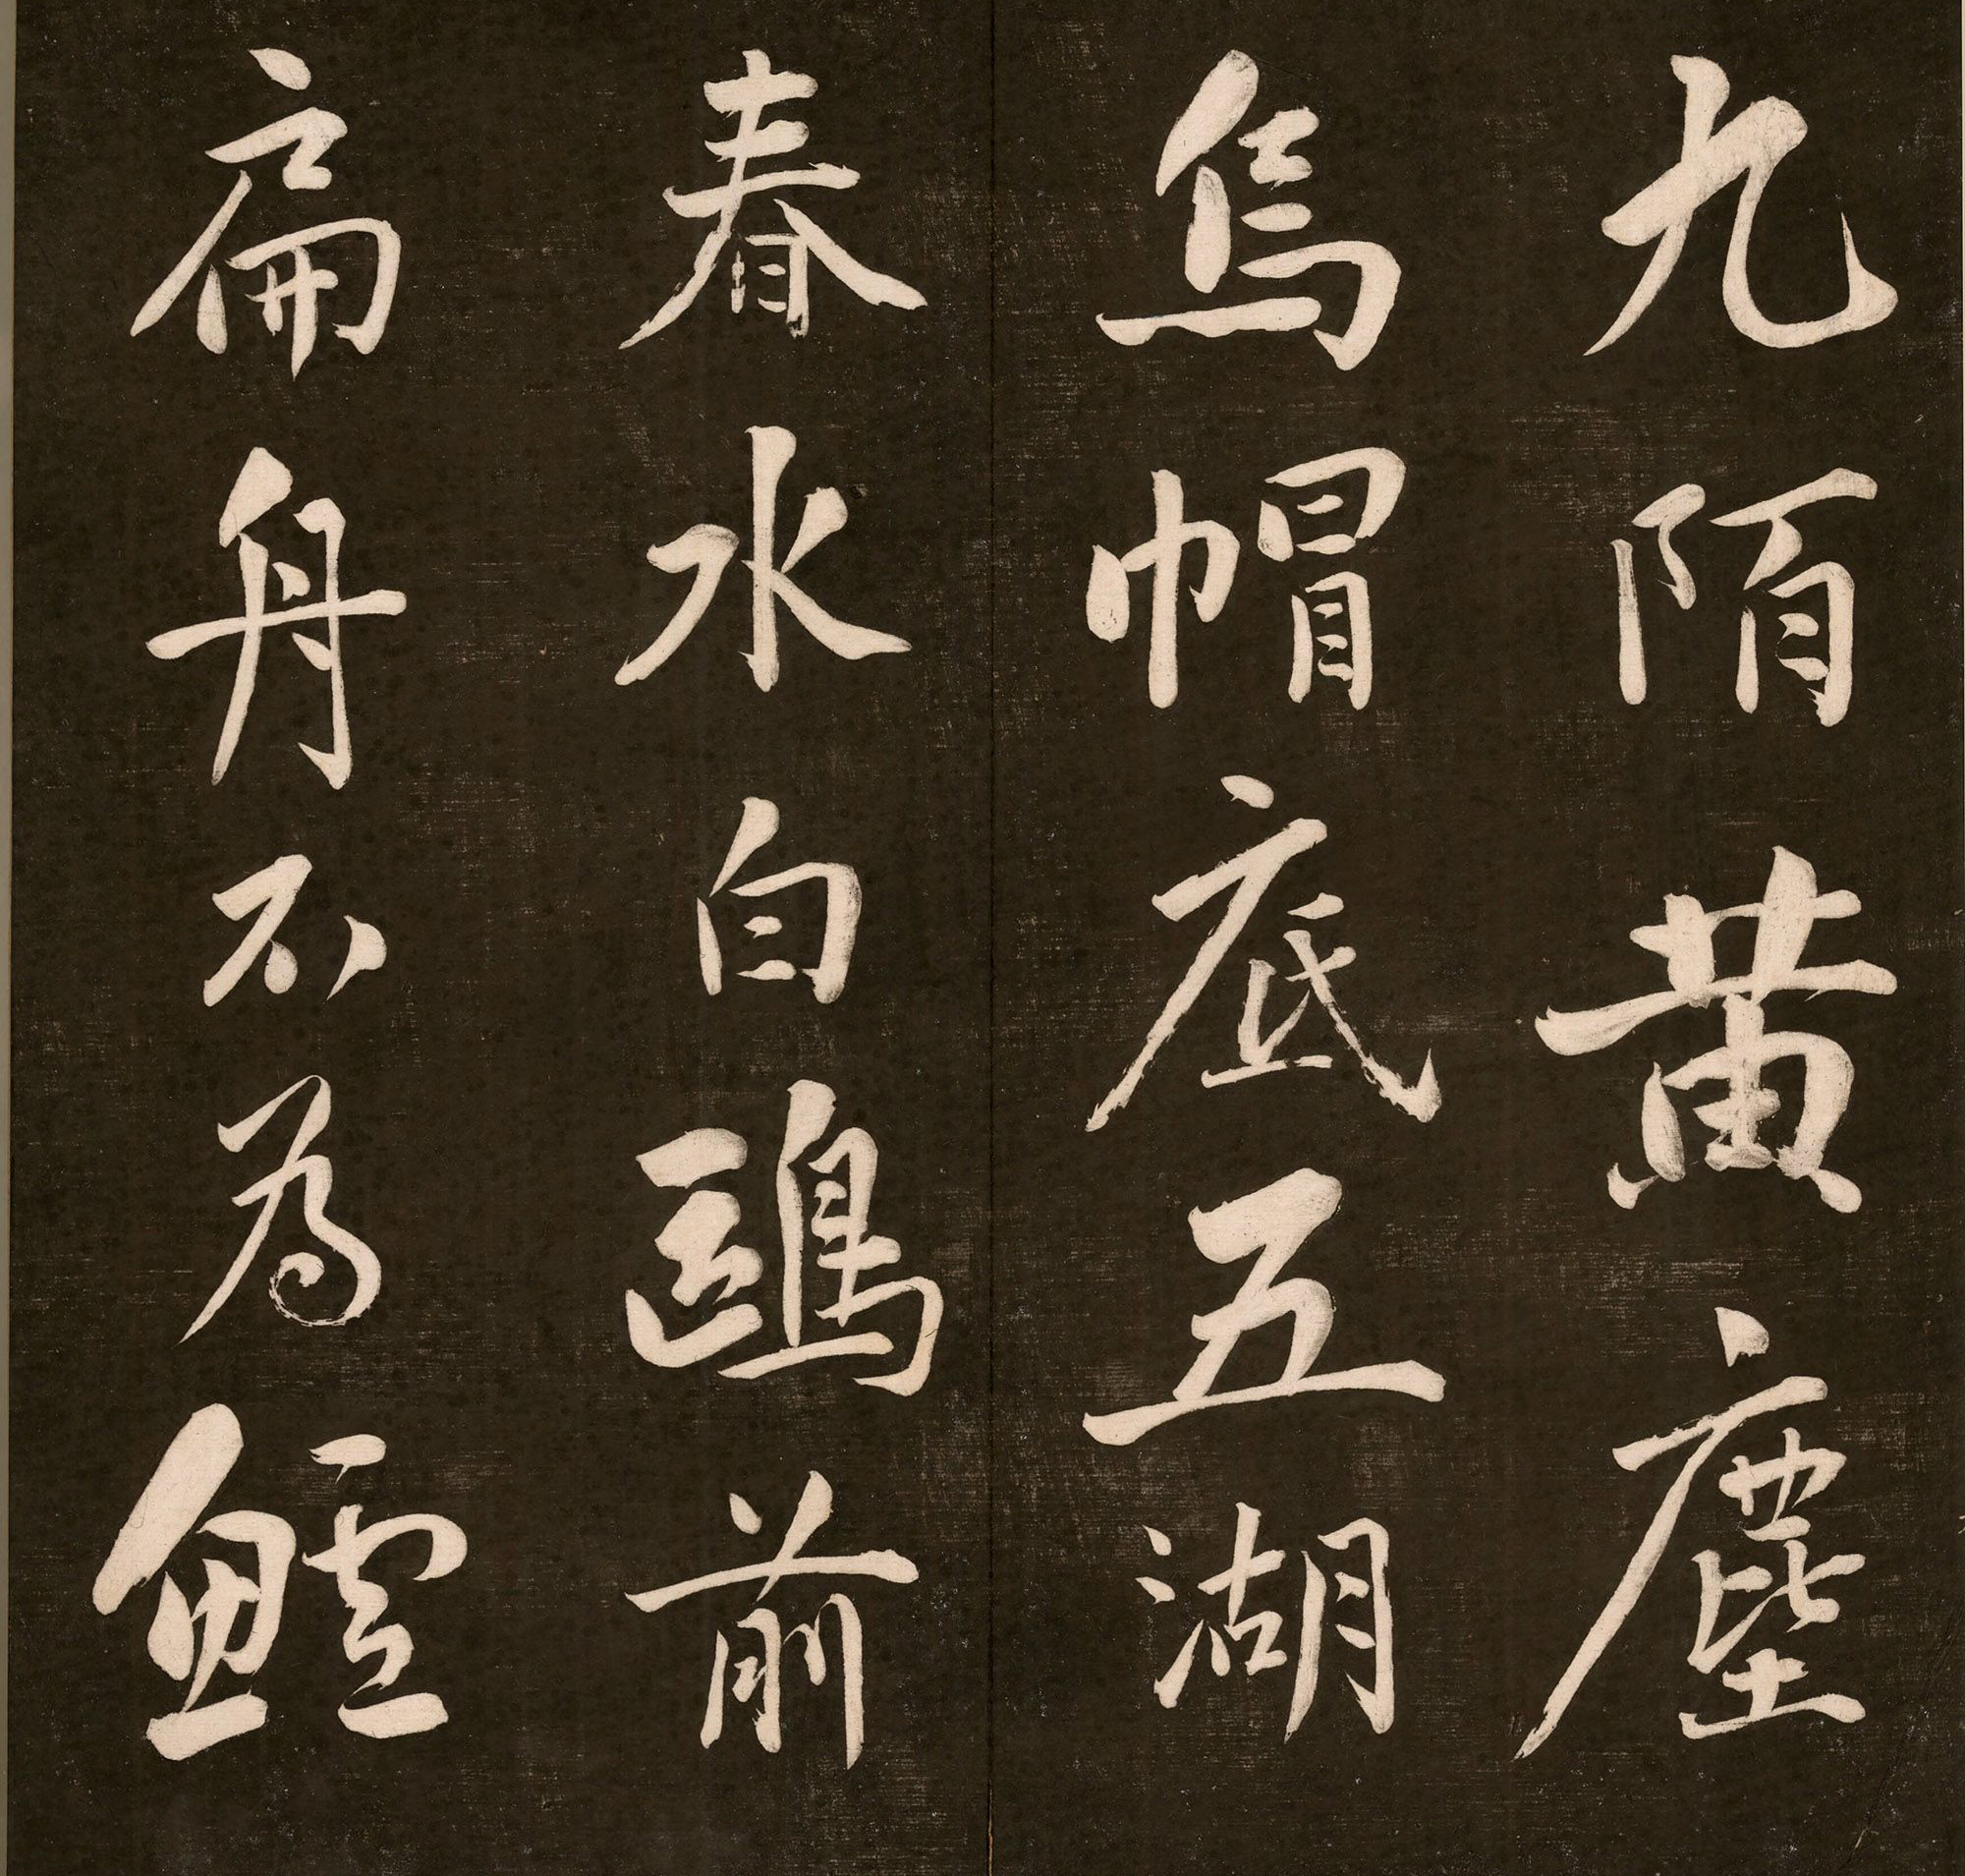 九陌黄塵
烏帽底五湖
春水白鷗前
扁舟不為鱸